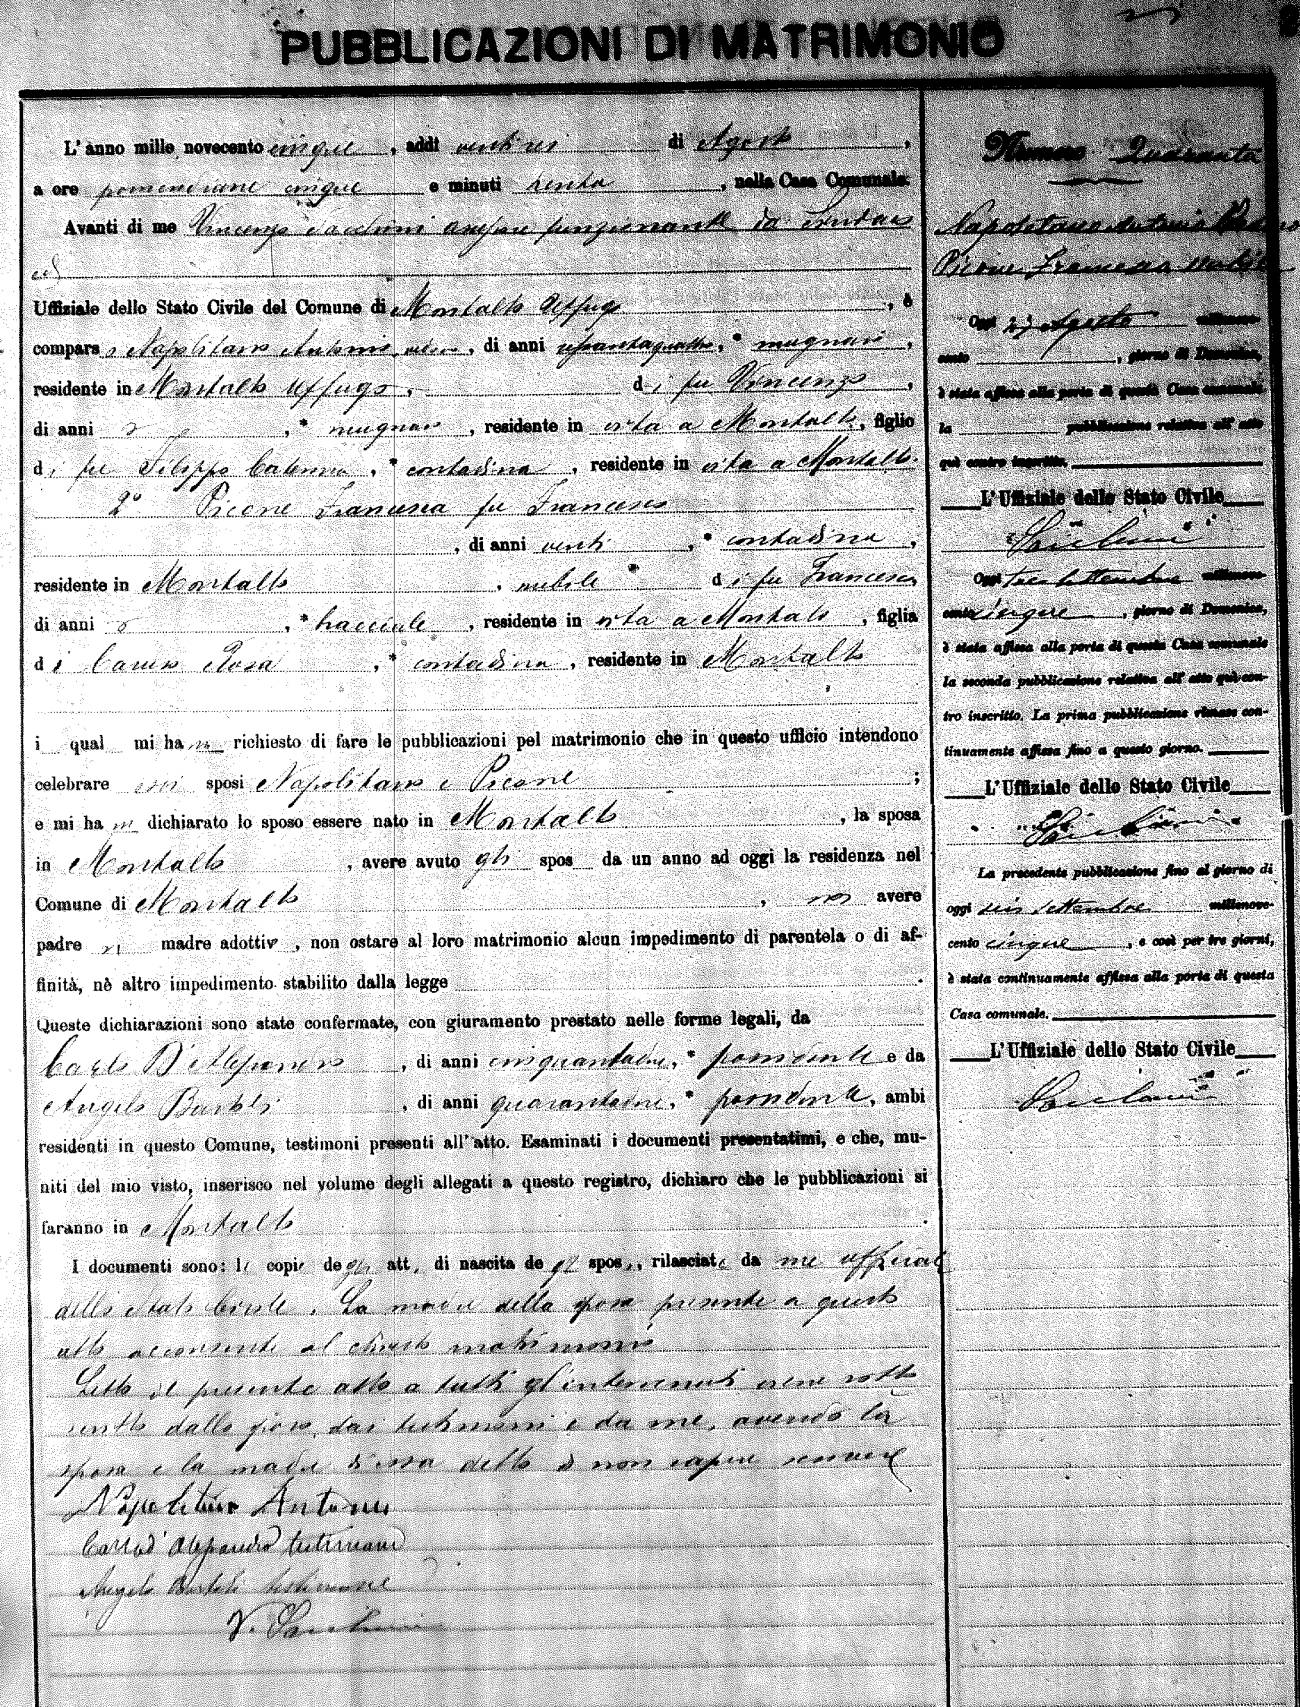 PUBBLICAZIONI DI MATRIMONIO
L'anno mille novecento cinque, addì ventitre di Agosto,
a ore pomeridiane cinque e minuti trenta, nella Casa Comunale.
Avanti di me Vincenzo assessore funzionante da Sindaco
ed
Uffiziale dello Stato Civile del Comune di Montalto Uffugo, è
compars i Napolitano Antonio, di anni, * mugnaio,
residente in Montalto Uffugo, di fu Vincenzo,
di anni, * mugnaio, residente in vita a Montalto, figlio
di fu Filippo Caterina, * contadina, residente in vita a Montalto.
2° Picone Francesca fu Francesco
, di anni venti, * contadina,
residente in Montalto, nubile * di fu Francesco
di anni, * bracciale, residente in vita a Montalto, figlia
di Caruso Rosa, * contadina, residente in Montalto
i qual mi hanno richiesto di fare le pubblicazioni pel matrimonio che in questo ufficio intendono
celebrare essi sposi Napolitano e Picone;
e mi hanno dichiarato lo sposo essere nato in Montalto, la sposa
in Montalto, avere avuto gli spos da un anno ad oggi la residenza nel
Comune di Montalto, non avere
padre ni madre adottiv, non ostare al loro matrimonio alcun impedimento di parentela o di af-
finità, nè altro impedimento stabilito dalla legge.
Queste dichiarazioni sono state confermate, con giuramento prestato nelle forme legali, da
Carlo D'Alessandro, di anni cinquantadue, * possidente e da
Angelo Bartoli, di anni quarantadue, * possidente, ambi
residenti in questo Comune, testimoni presenti all'atto. Esaminati i documenti presentatimi, e che, mu-
niti del mio visto, inserisco nel volume degli allegati a questo registro, dichiaro che le pubblicazioni si
faranno in Montalto.
I documenti sono: le copie degli atti di nascita de gl sposi, rilasciate da me uffiziale
dello stato Civile. La madre della sposa presente a questo
atto acconsente al chiesto matrimonio
Letto il presente atto a tutti gl'intervenuti viene sotto
scritto dallo sposo, dai testimoni e da me, avendo la
sposa e la madre d'essa detto di non sapere scrivere
Napolitano Antonio
Carlo d'Alessandro testimone
Angelo Bartoli testimone
Numero Quaranta
Napolitano Antonio
Picone Francesca nubile
Oggi 27 Agosto millenove-
cento, giorno di Domenica,
è stata affissa alla porta di questa Casa comunale
la pubblicazione relativa all'atto
quì contro inscritto.
L'Uffiziale dello Stato Civile
Oggi tre settembre millenove-
cento cinque, giorno di Domenica,
è stata affissa alla porta di questa Casa comunale
la seconda pubblicazione relativa all'atto quì con-
tro inscritto. La prima pubblicazione rimase con-
tinuamente affissa fino a questo giorno.
L'Uffiziale dello Stato Civile
La precedente pubblicazione fino al giorno di
oggi sei settembre millenove-
cento cinque, e così per tre giorni,
è stata continuamente affissa alla porta di questa
Casa comunale.
L'Uffiziale dello Stato Civile